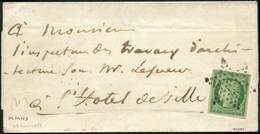 à Monsieur
l'inspecteur des travaux d'archi-
tecture Mr. Lequeux
à l'Hotel de Ville